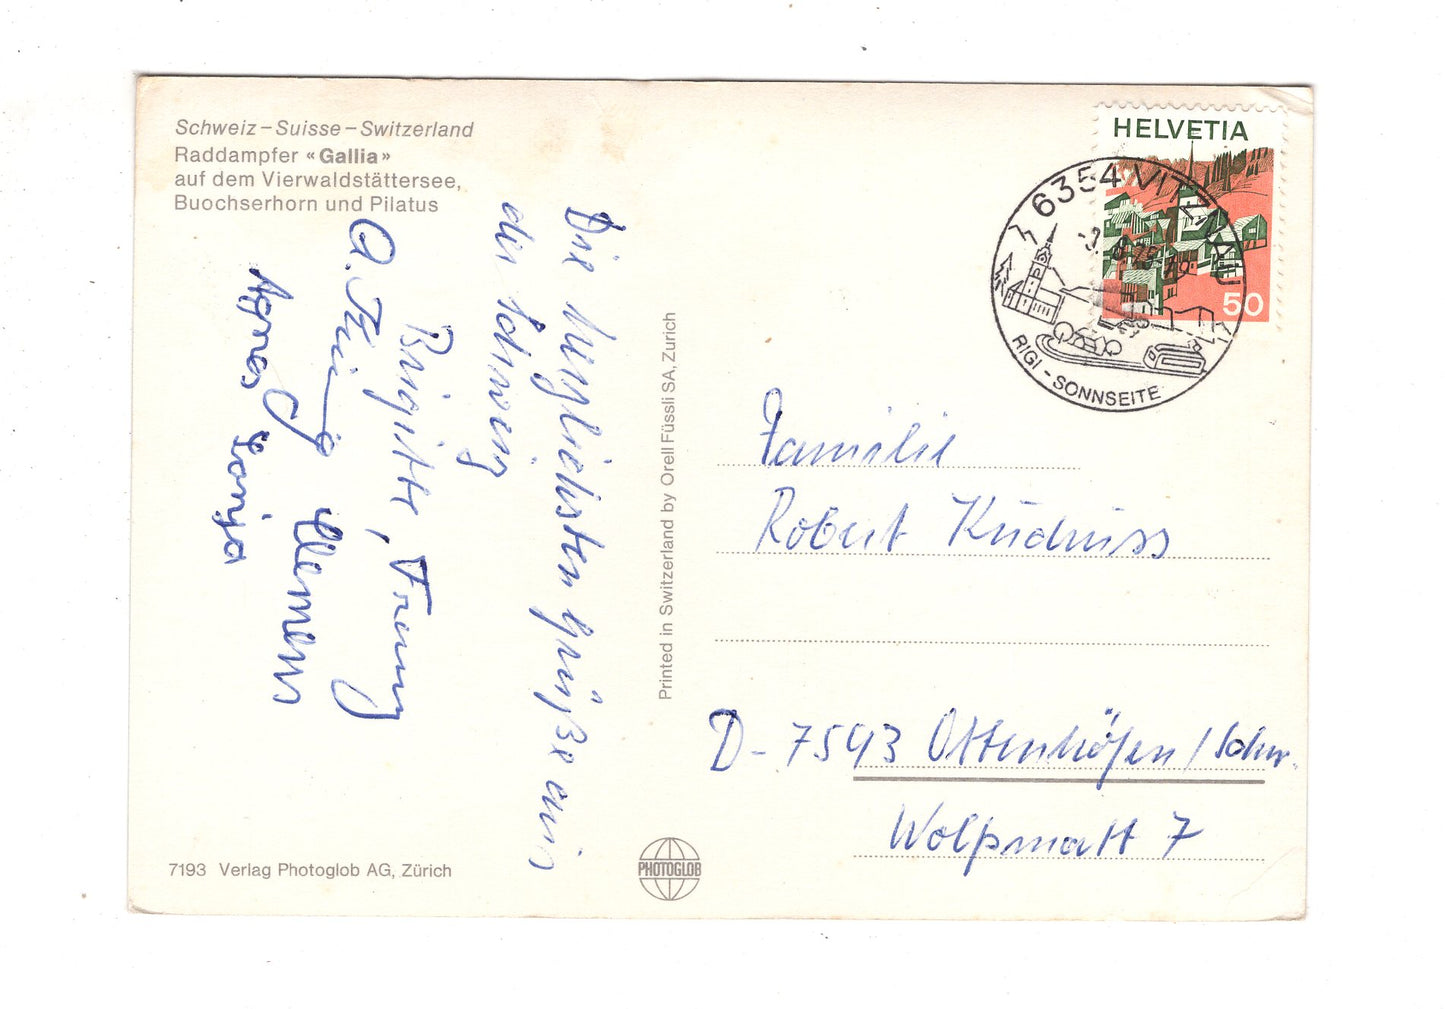 Schweiz – Suisse – Switzerland
Raddampfer «Gallia»
auf dem Vierwaldstättersee,
Buochserhorn und Pilatus
Die herzlichsten Grüße aus
der Schweiz
Brigitte, Franz
Clemens
Agnes Sonja
7193 Verlag Photoglob AG, Zürich
Printed in Switzerland by Orell Füssli SA, Zurich
PHOTOGLOB
HELVETIA
50
6354 VITZNAU
RIGI - SONNSEITE
Familie
Robert
D- 7593 Ottenhöfen / Schw.
Wolfsmatt 7